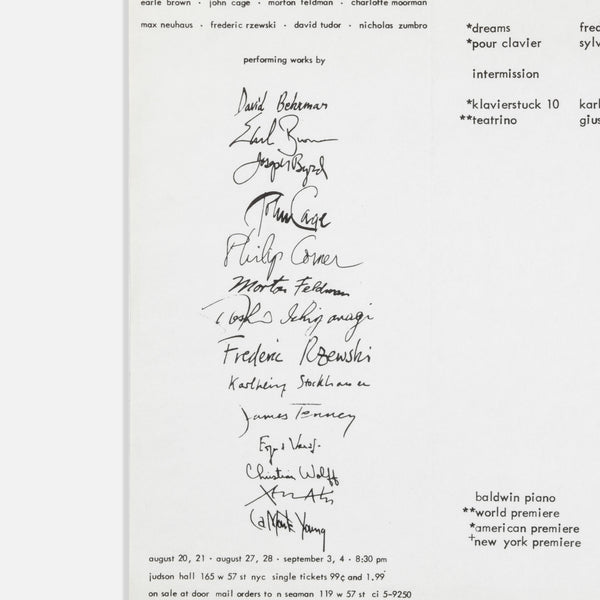 earle brown · john cage · morton feldman · charlotte moorman
max neuhaus · frederic rzewski · david tudor · nicholas zumbro
performing works by
David Behrman
Earle Brown
Joseph Byrd
John Cage
Philip Corner
Morton Feldman
Toshi Ichiyanagi
Frederic Rzewski
Karlheinz Stockhausen
James Tenney
Christian Wolff
La Monte Young
august 20, 21 · august 27, 28 · september 3, 4 · 8:30 pm
judson hall 165 w 57 st nyc single tickets 99¢ and 1.99
on sale at door mail orders to n seaman 119 w 57 st ci 5-9250
*dreams
*pour clavier
intermission
*klavierstuck 10 karl
**teatrino
baldwin piano
**world premiere
*american premiere
+new york premiere